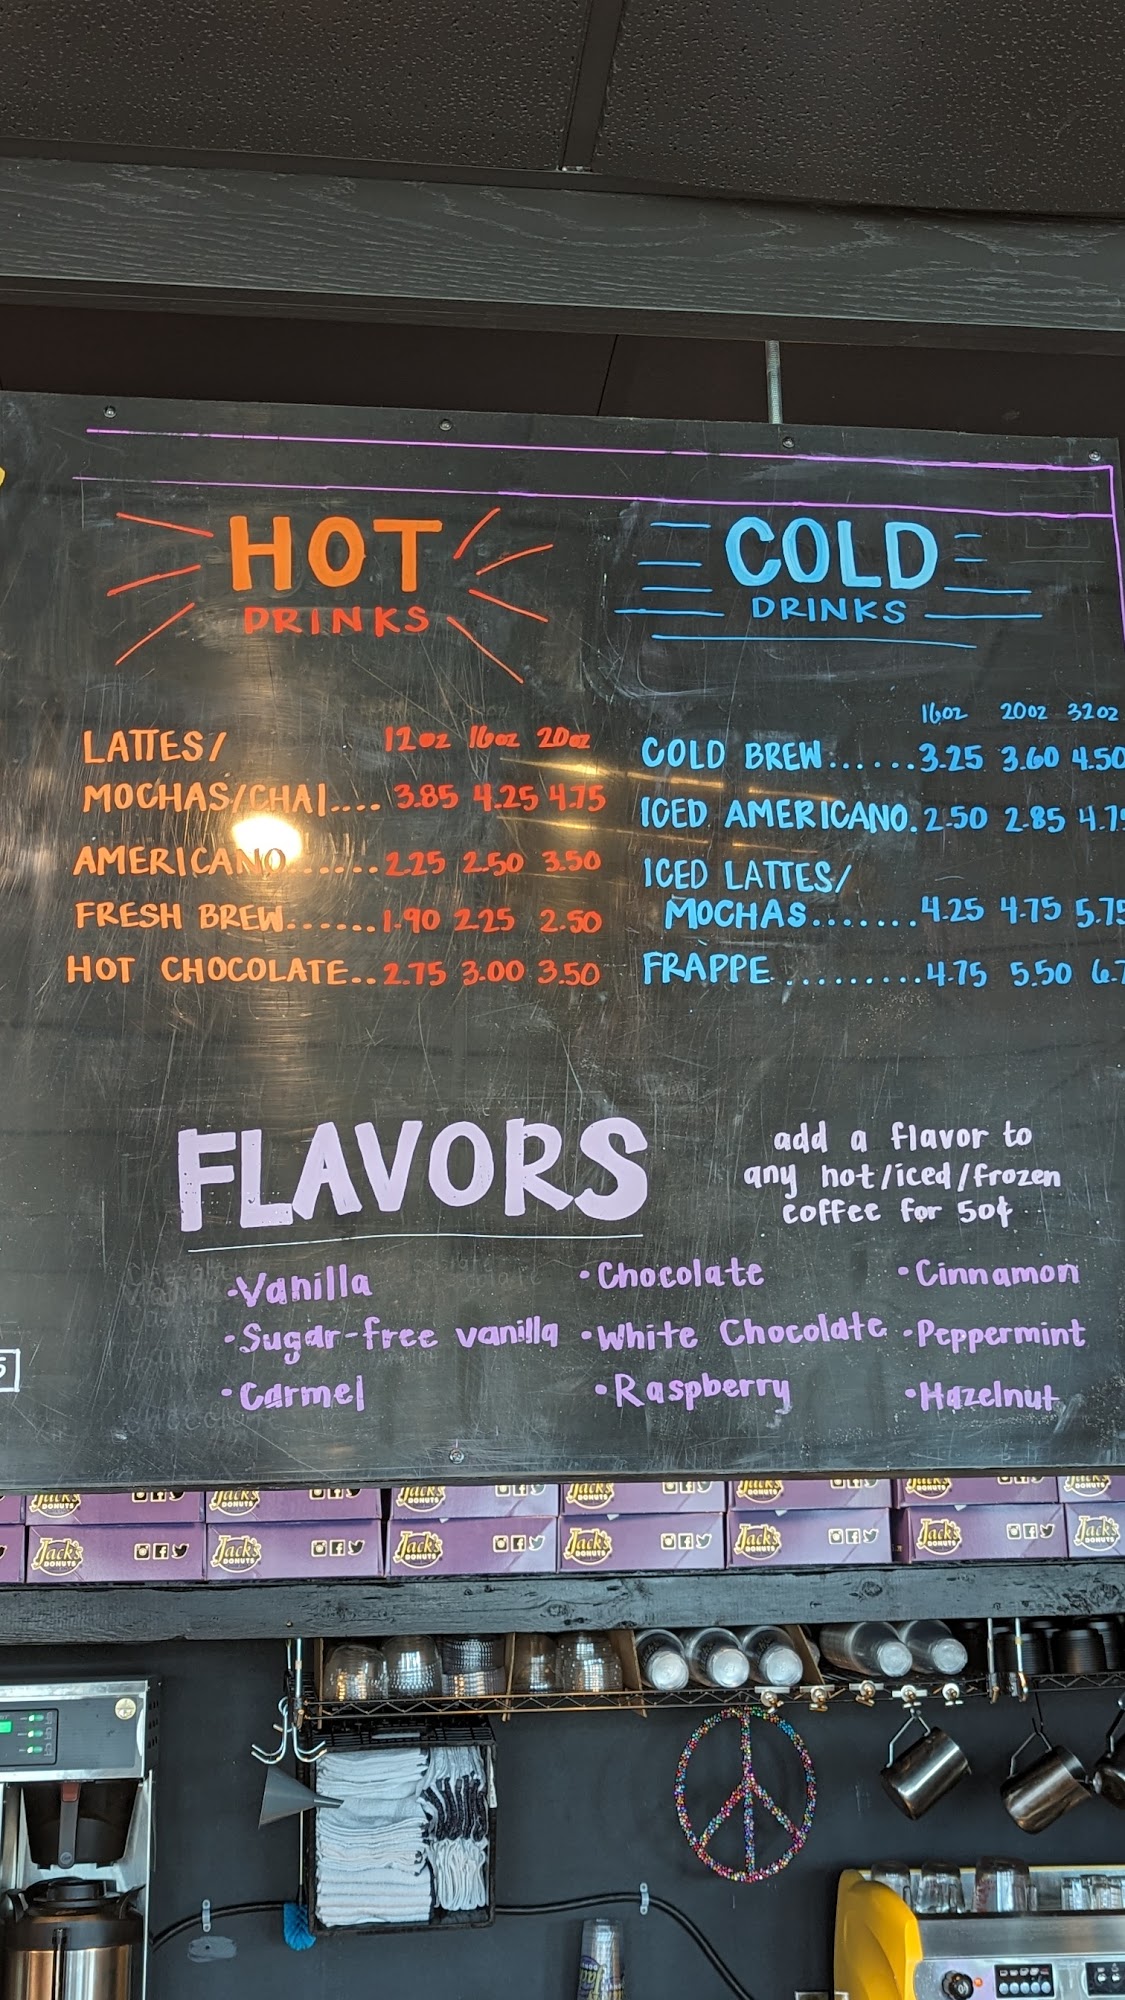 HOT
DRINKS
12oz 16oz 20oz
LATTES/
MOCHAS/CHAI.... 3.85 4.25 4.75
AMERICANO......2.25 2.50 3.50
FRESH BREW......1.90 2.25 2.50
HOT CHOCOLATE..2.75 3.00 3.50
COLD
DRINKS
16oz 20oz 32oz
COLD BREW......3.25 3.60 4.50
ICED AMERICANO.2.50 2.85
ICED LATTES/
MOCHAS.......4.25 4.75 5.75
FRAPPE.........4.75 5.50
FLAVORS
add a flavor to
any hot/iced/frozen
coffee for 50¢
•Vanilla
•Sugar-free vanilla
•Carmel
•Chocolate
•White Chocolate
•Raspberry
•Cinnamon
•Peppermint
•Hazelnut
Jack's
DONUTS
Jack's
DONUTS
Jack's
DONUTS
Jack's
DONUTS
Jack's
DONUTS
Jack's
DONUTS
Jack's